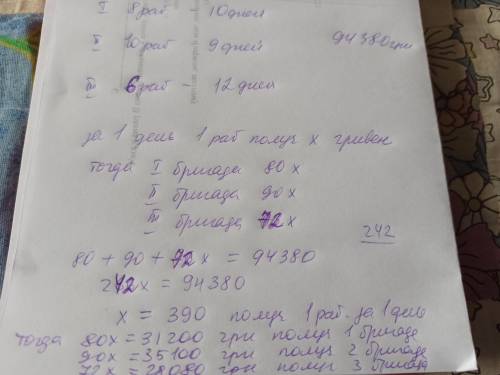 I 8 раб 10 дней
II 10 раб 9 дней 94380 грн
III 6 раб - 12 дней
за 1 день 1 раб получ x гривен
тогда I бригада 80x
II бригада 90x
III бригада 72x
242
80 + 90 + 72x = 94380
242x = 94380
x = 390 получ 1 раб. за 1 день
тогда 80x = 31200 грн получ 1 бригаде
90x = 35100 грн получ 2 бригаде
72x = 28080 грн получ 3 бригада